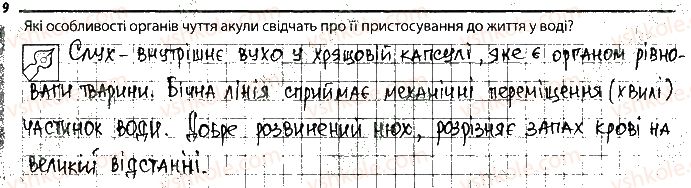 9
Які особливості органів чуття акули свідчать про її пристосування до життя у воді?
Слух - внутрішнє вухо у хрящовій капсулі, яке є органом рівно-
ваги тварини. Бічна лінія сприймає механічні переміщення (хвилі)
частинок води. Добре розвинений нюх, розрізняє запах крові на
великій відстанні.